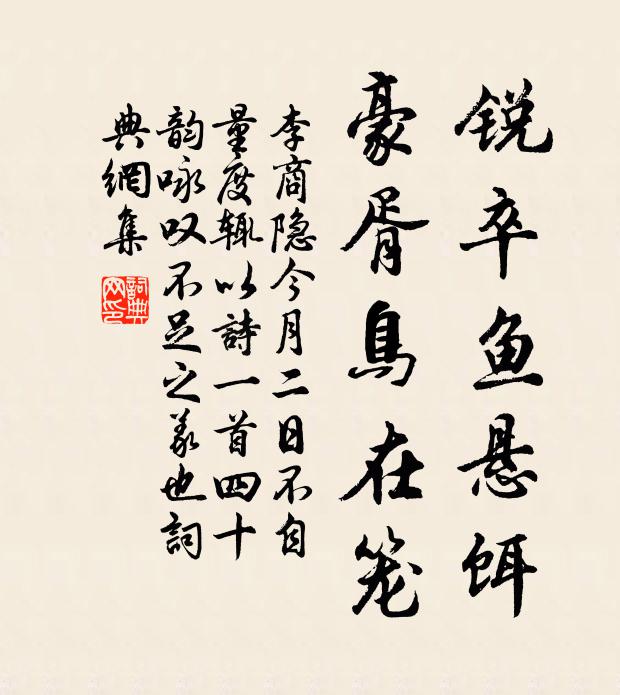 锐卒鱼悬饵
豪胥鸟在笼
李商隐今月二日不自
量度辄以詩一首四十
韵咏叹不足之义也词
典網集
詞典网印